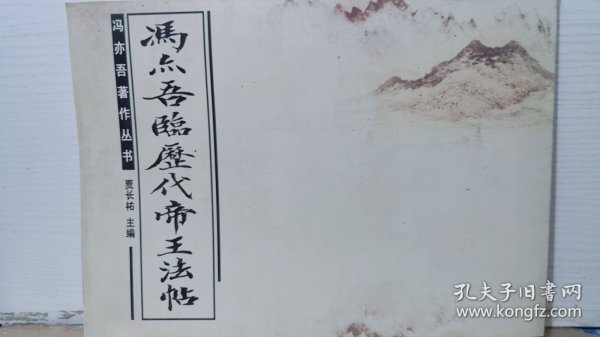 冯亦吾著作丛书
贾长祐 主编
馮亦吾臨歷代帝王法帖
孔夫子旧书网
www.kongfz.com